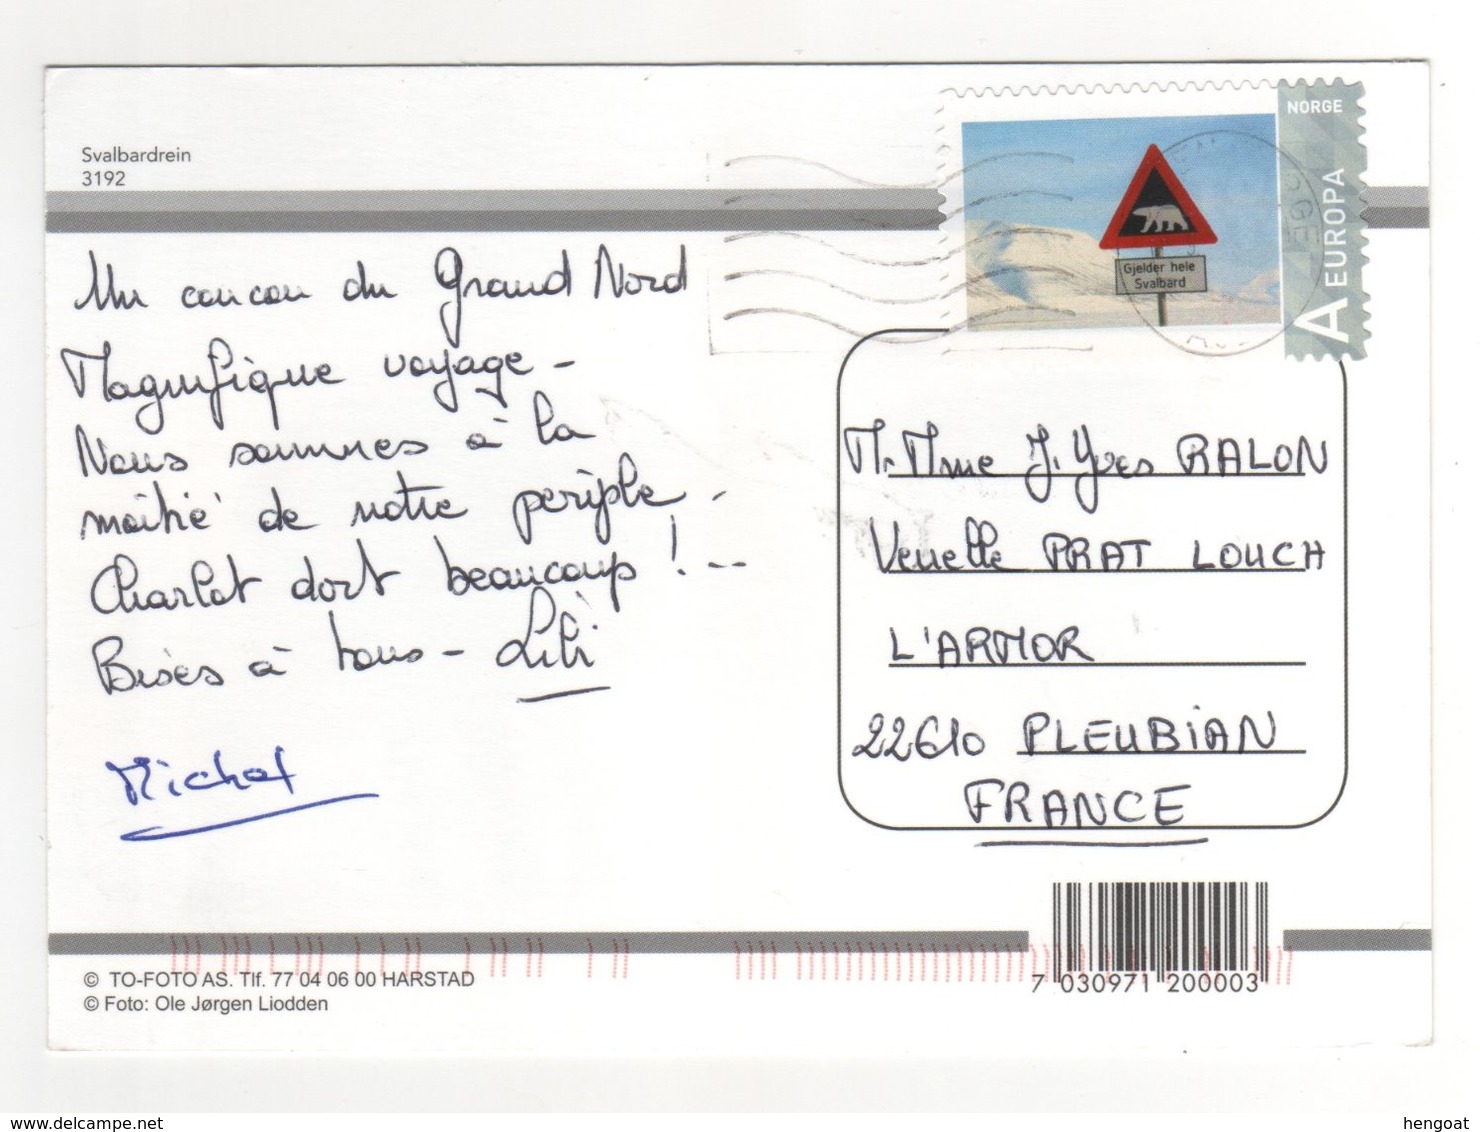 Svalbardrein
3192
NORGE
A EUROPA
Gjelder hele
Svalbard
Un coucou du Grand Nord
Magnifique voyage -
Nous sommes à la
moitié de notre périple -
Charlot dort beaucoup ! --
Bises à tous - Lili
Michel
M. Mme J. Yves RALON
Venelle PRAT LOUCH
L'ARMOR
22610 PLEUBIAN
FRANCE
© TO-FOTO AS. Tlf. 77 04 06 00 HARSTAD
© Foto: Ole Jørgen Liodden
7 030971 200003
www.delcampe.net
hengoat